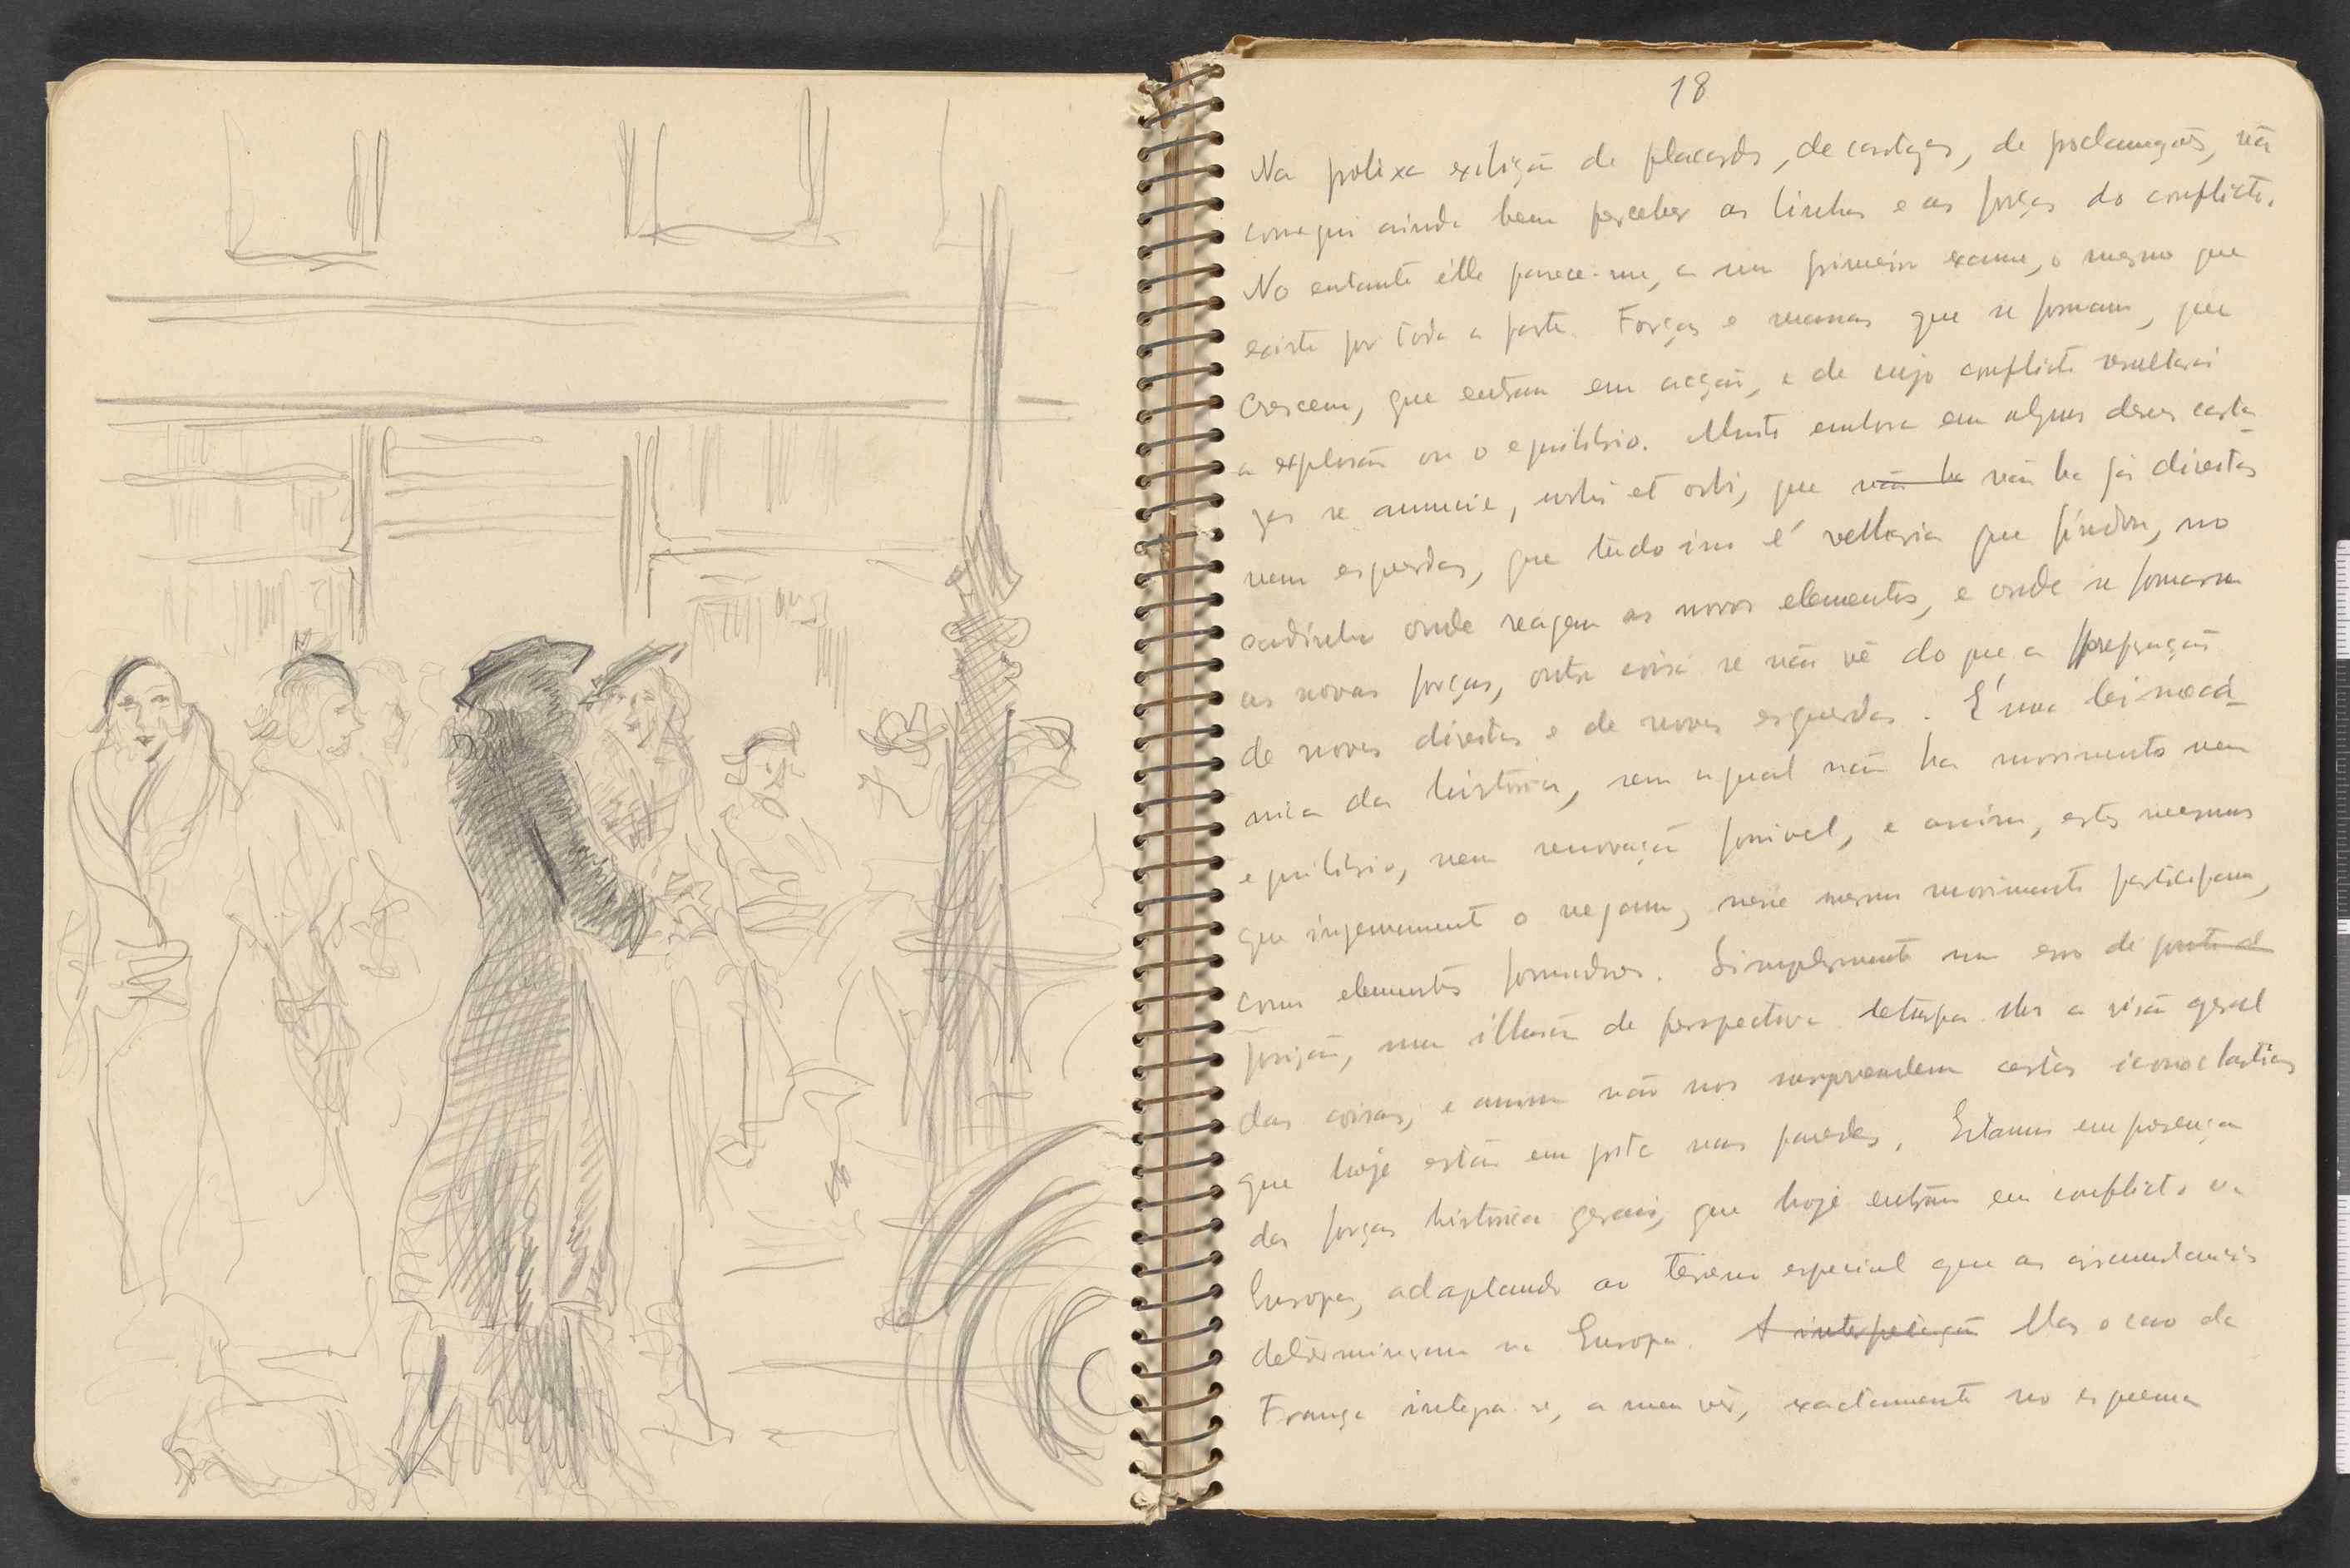 18
Na prolixa exibição de placards, de cartazes, de proclamações, não
consegui ainda bem perceber as linhas e as forças do conflicto.
No entanto élle parece-me, a um primeiro exame, o mesmo que
existe por toda a parte. Forças e massas que se formam, que
crescem, que entram em acção, e de cujo conflicto resultará
a explosão ou o equilibrio. Muito embora em alguns desses carta-
zes se anuncie, urbi et orbi, que não ha não ha já direitas
nem esquerdas, que tudo isso é velharia que findou, no
cadinho onde reagem os novos elementos, e onde se formaram
as novas forças, outra coisa se não vê do que a preparação
de novas direitas e de novas esquerdas. É uma lei mecâ-
nica da história, sem a qual não ha movimento nem
equilibrio, nem renovação possivel, e assim, estes mesmos
que ingenuamente o negam, nesse mesmo movimento participam,
como elementos formadores. Simplesmente um erro de ponto de
posição, uma illusão de perspectiva deturpa-lhes a visão geral
das coisas, e assim não nos surpreendem certas iconoclastias
que hoje estão em pista nas paredes. Estamos em presença
das forças historica gerais, que hoje entram em conflicto na
Europa, adaptando ao terreno especial que as circumstancias
determinaram na Europa. A interpretação Mas o caso da
França integra-se, a meu vêr, exactamente no esquema